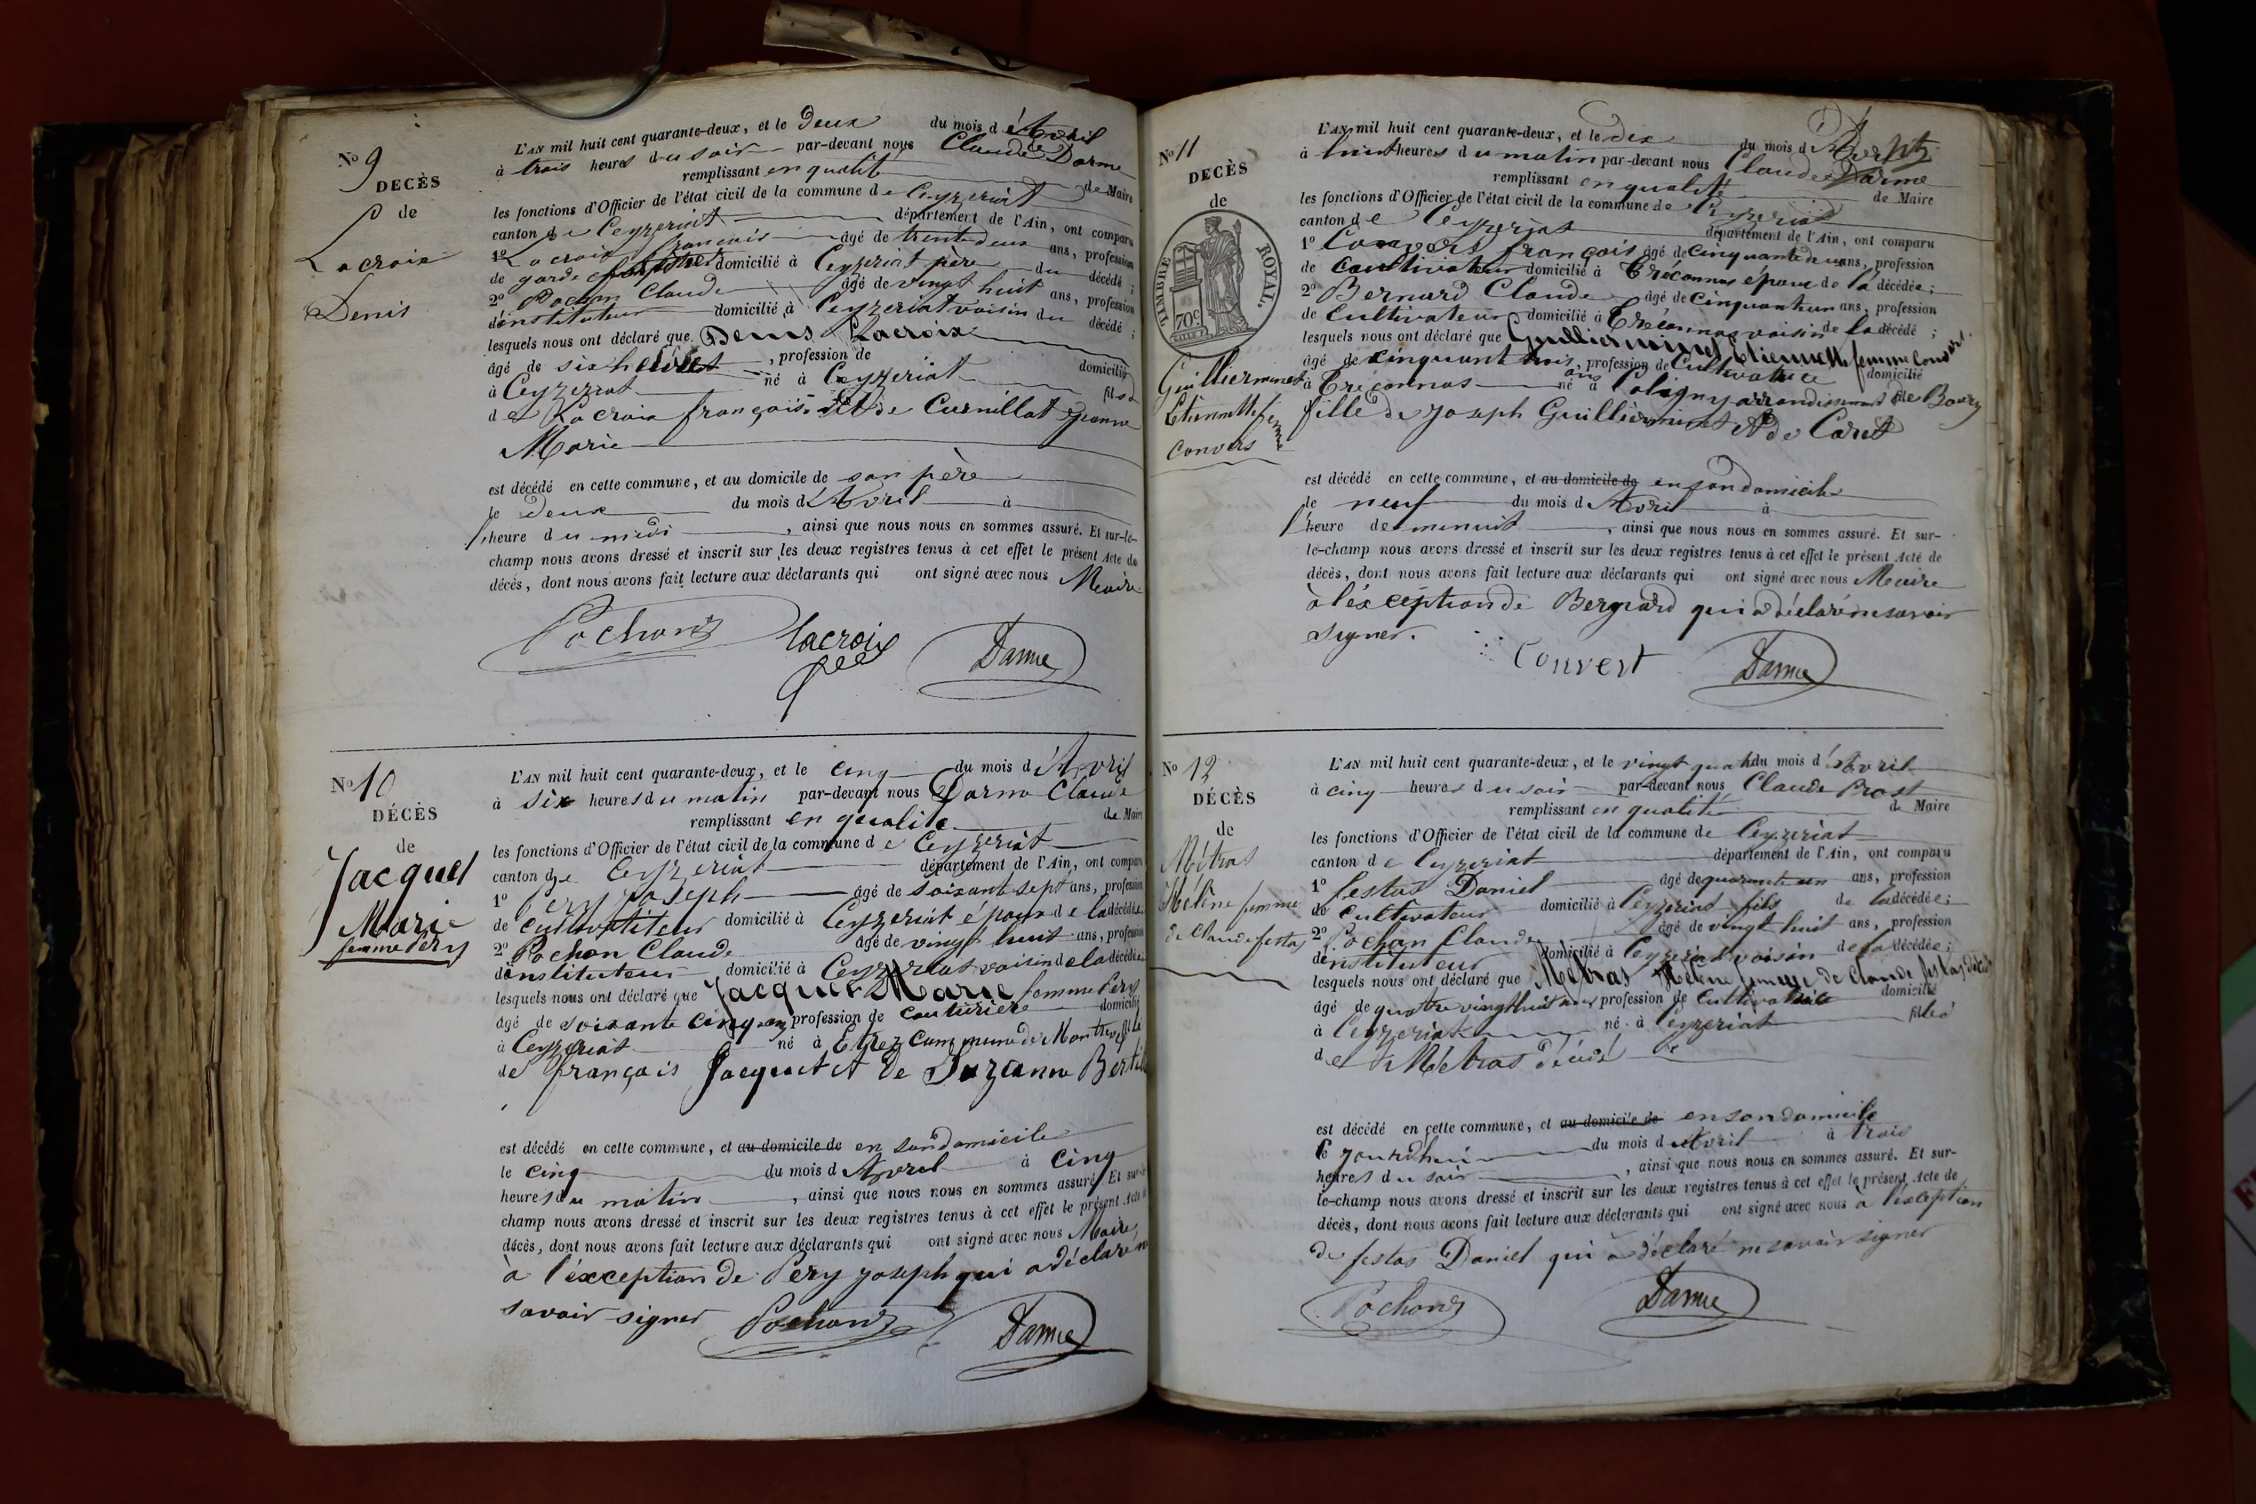 No 9
DECÈS
de
Lacroix
Denis
L'AN mil huit cent quarante-deux, et le deux du mois d'Avril
à trois heures du soir par-devant nous Claude Darme
remplissant en qualité de Maire
les fonctions d'Officier de l'état civil de la commune de Ceyzeriat
canton de Ceyzeriat département de l'Ain, ont comparu
1º Lacroix françois âgé de trente deux ans, profession
de garde forestier domicilié à Ceyzeriat père du décédé ;
2º Pochon Claude âgé de vingt huit ans, profession
d'instituteur domicilié à Ceyzeriat voisin du décédé ;
lesquels nous ont déclaré que Denis Lacroix
âgé de six heures, profession de domicilié
à Ceyzeriat né à Ceyzeriat fils
de Lacroix françois et de Curnillat Jeanne
Marie
est décédé en cette commune, et au domicile de son père
le deux du mois d'Avril à
l'heure du midi, ainsi que nous nous en sommes assuré. Et sur-le-
champ nous avons dressé et inscrit sur les deux registres tenus à cet effet le présent Acte de
décès, dont nous avons fait lecture aux déclarants qui ont signé avec nous Maire
Pochon lacroix Darme
No 10
DÉCÈS
de
Jacquet
Marie
femme Pery
L'AN mil huit cent quarante-deux, et le cinq du mois d'Avril
à six heures du matin par-devant nous Darme Claude
remplissant en qualité de Maire
les fonctions d'Officier de l'état civil de la commune de Ceyzeriat
canton de Ceyzeriat département de l'Ain, ont comparu
1º Pery Joseph âgé de soixante sept ans, profession
de cultivateur domicilié à Ceyzeriat époux de la décédée
2º Pochon Claude âgé de vingt huit ans, profession
d'instituteur domicilié à Ceyzeriat voisin de la décédée
lesquels nous ont déclaré que Jacquet Marie femme Pery
âgé de soixante cinq ans profession de couturière domicilié
à Ceyzeriat né à Etrez commune de Montrevel fille
de françois Jacquet et de Suzanne
est décédé en cette commune, et au domicile de en son domicile
le cinq du mois d'Avril à cinq
heures du matin, ainsi que nous nous en sommes assuré. Et sur-le-
champ nous avons dressé et inscrit sur les deux registres tenus à cet effet le présent Acte de
décès, dont nous avons fait lecture aux déclarants qui ont signé avec nous Maire
à l'exception de Pery joseph qui a déclaré ne
savoir signer Pochon Darme
No 11
DECÈS
de
TIMBRE ROYAL.
70c
Guillierminet
Etiennette femme
convers
L'AN mil huit cent quarante-deux, et le dix du mois d'Avril
à huit heures du matin par-devant nous Claude Darme
remplissant en qualité de Maire
les fonctions d'Officier de l'état civil de la commune de Ceyzeriat
canton de Ceyzeriat département de l'Ain, ont comparu
1º Convers françois âgé de cinquante deux ans, profession
de cultivateur domicilié à Tréconnas époux de la décédée ;
2º Bernard Claude âgé de cinquante un ans, profession
de Cultivateur domicilié à Tréconnas voisin de la décédé ;
lesquels nous ont déclaré que Guillierminet Etiennette femme Convers
âgé de cinquant trois ans, profession de Cultivatrice domicilié
à Tréconnas né à Coligny arrondissement de Bourg
fille de joseph Guillierminet et de Caret
est décédé en cette commune, et au domicile de en son domicile
le neuf du mois d'Avril à
l'heure de minuit, ainsi que nous nous en sommes assuré. Et sur-
le-champ nous avons dressé et inscrit sur les deux registres tenus à cet effet le présent Acte de
décès, dont nous avons fait lecture aux déclarants qui ont signé avec nous Maire
à l'exception de Bernard qui a déclaré ne savoir
signer.
Convert Darme
No 12
DÉCÈS
de
Métras
Hélène femme
de Claude festas
L'AN mil huit cent quarante-deux, et le vingt quatre du mois d'Avril
à cinq heures du soir par-devant nous Claude Prost
remplissant en qualité de Maire
les fonctions d'Officier de l'état civil de la commune de Ceyzeriat
canton de Ceyzeriat département de l'Ain, ont comparu
1º festas Daniel âgé de quarante un ans, profession
de cultivateur domicilié à Ceyzeriat fils de la décédée ;
2º Pochon Claude âgé de vingt huit ans, profession
d'instituteur domicilié à Ceyzeriat voisin de la décédée ;
lesquels nous ont déclaré que Métras Hélène femme de Claude festas
âgé de quatre vingt huit ans profession de cultivatrice domicilié
à Ceyzeriat né à Ceyzeriat fille
de Métras
est décédé en cette commune, et au domicile de en son domicile
le jourdhui du mois d'Avril à trois
heures du soir, ainsi que nous nous en sommes assuré. Et sur-
le-champ nous avons dressé et inscrit sur les deux registres tenus à cet effet le présent Acte de
décès, dont nous avons fait lecture aux déclarants qui ont signé avec nous à l'exception
de festas Daniel qui a déclaré ne savoir signer
Pochon Darme